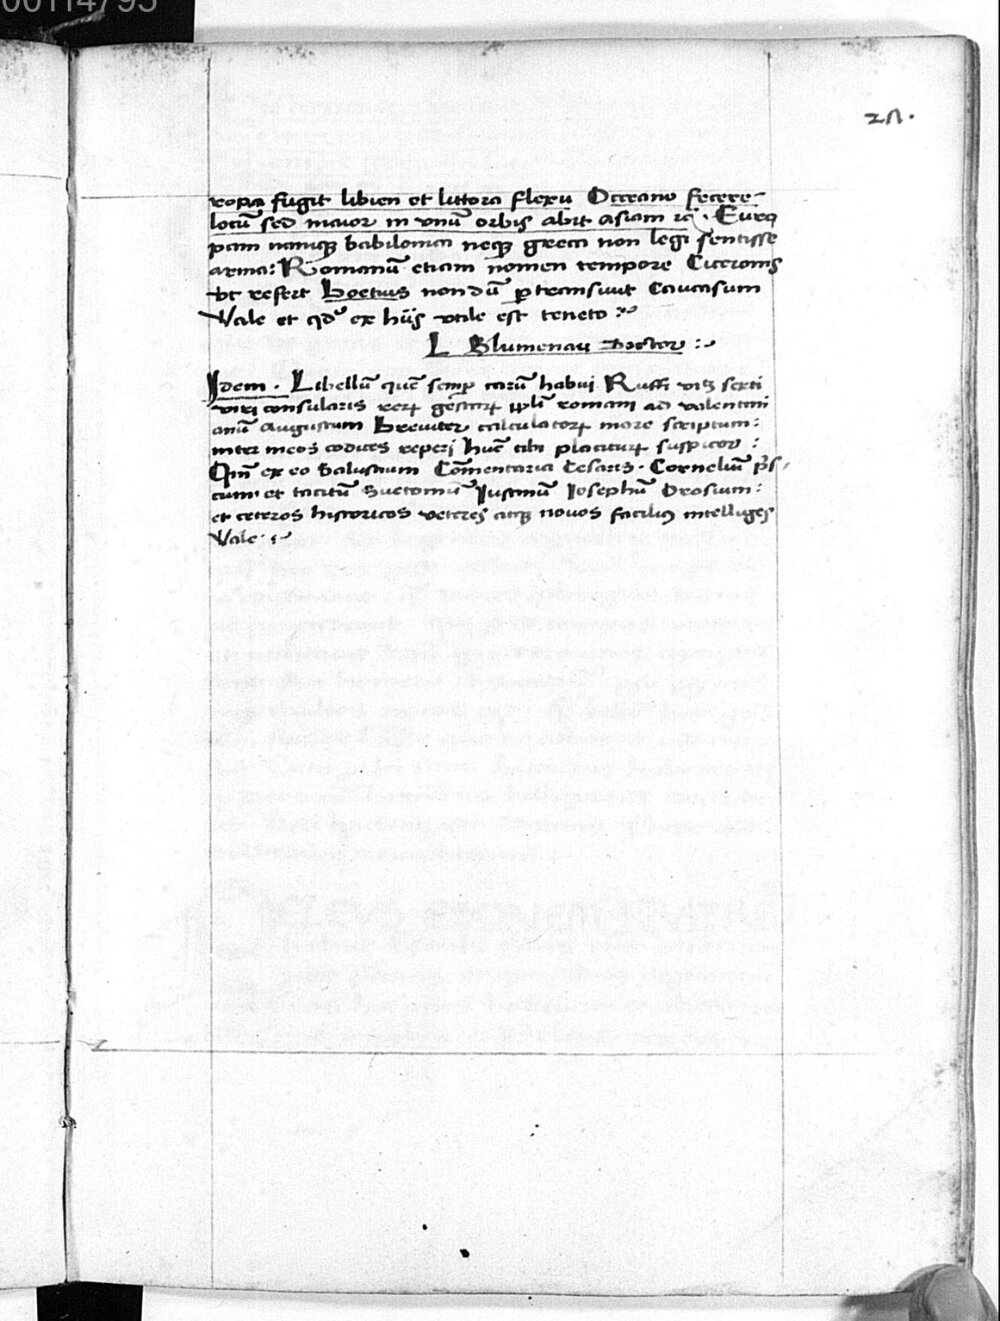 00114795
21.
ropa fugit libien et littora flexu Occeano fecere
locū sed maior in vnū orbis abit asiam rc̄. Euro
pam namqȝ babilonica neqȝ greca non legi sentisse
arma: Romanū etiam nomen tempore Ciceronis
vt refert Boetius nondū ꝑtransiuit Caucasum
Vale et qd̄ ex hūs vtile est teneto :~
L Blumenau doctor :~
Idem . Libellū quē semꝑ carū habui Ruffi sexti
viri consularis rerꝝ gestarꝝ ppl̄i romani ad valentini
anū Augustum Breuiter calculatorꝝ more scriptum:
inter meos codices reperi hūc tibi placiturꝝ suspicor :
Qm̄ ex eo Salustium Cōmentaria Cesaris . Corneliū
et tacitū Suetoniū Iustinū Iosephū Orosium:
et ceteros historicos veteres atqȝ nouos faciliꝰ intelliges
Vale :~